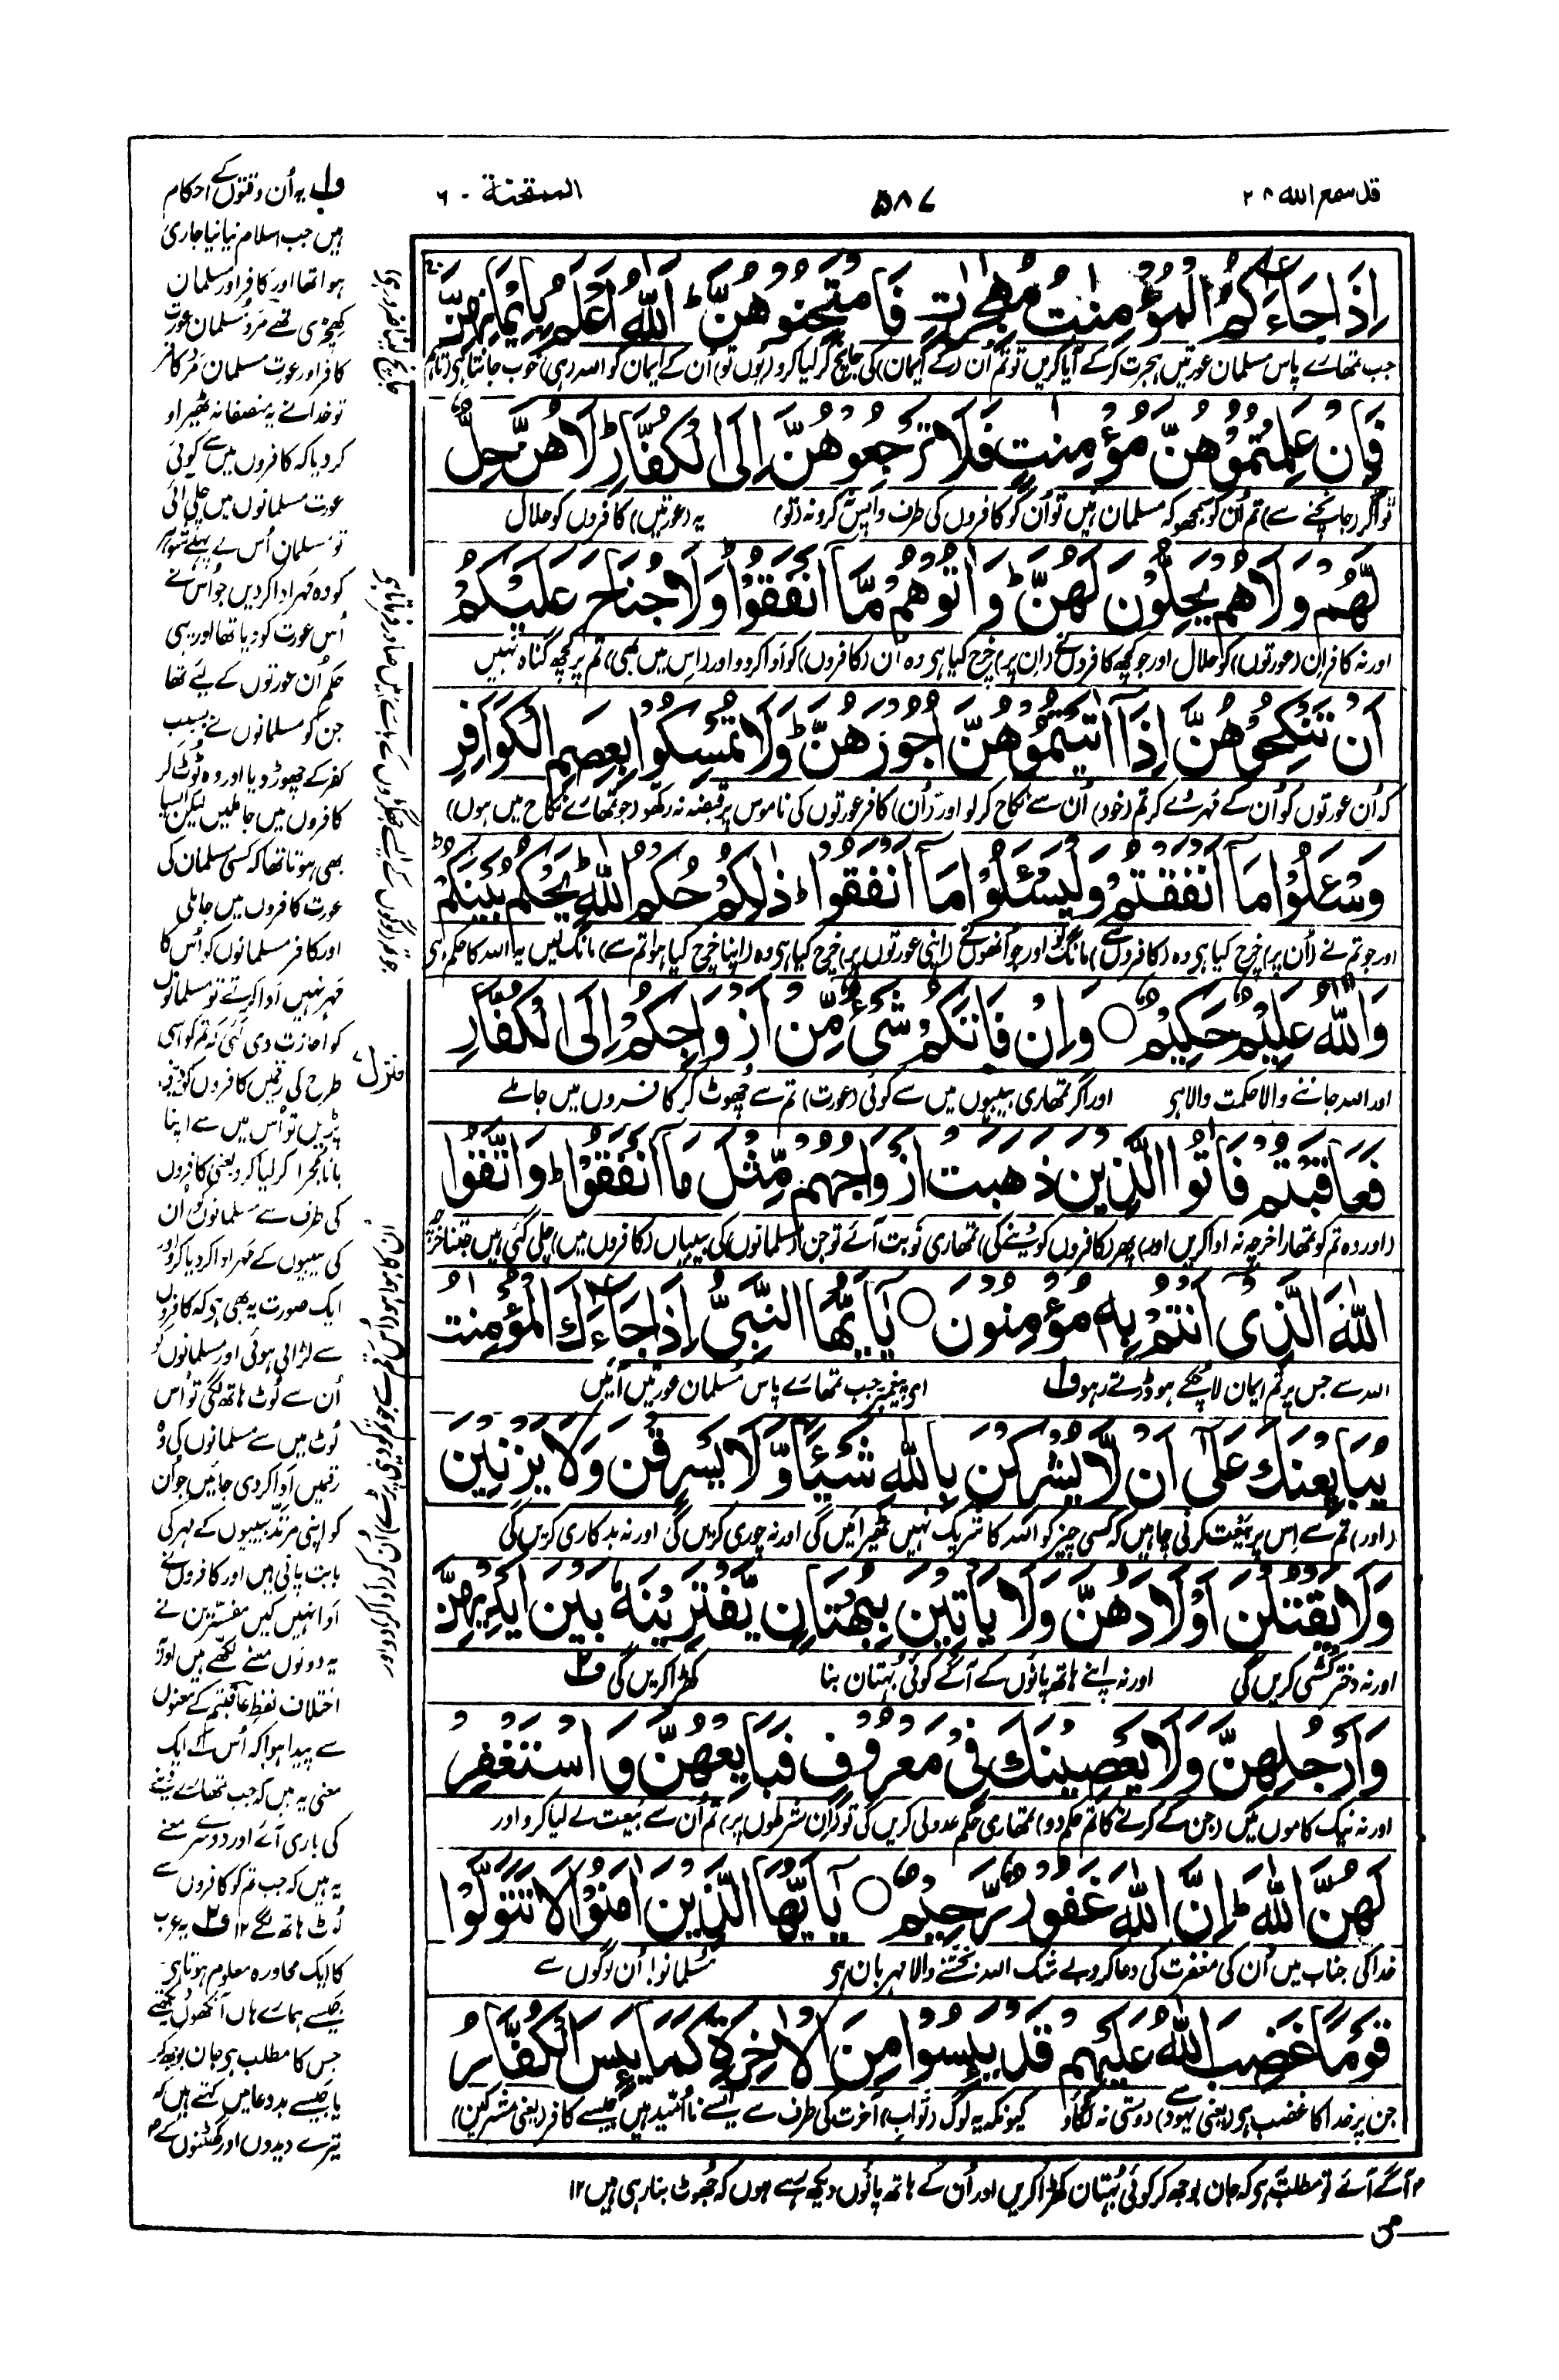 قد سمع الله ٢٨
٥٨٧
الممتحنة - ٦٠
اِذَا جَآءَكُمُ الْمُؤْمِنٰتُ مُهٰجِرٰتٍ فَامْتَحِنُوْهُنَّ ؕ اَللّٰهُ اَعْلَمُ بِاِيْمَانِهِنَّ
جب تمھارے پاس مسلمان عورتیں ہجرت کرکے آیا کریں تو تم اُن (کے ایمان) کی جانچ کر لیا کرو (یوں تو) اُن کے ایمان کو اللہ (ہی) خوب جانتا ہی (تاہم
فَاِنْ عَلِمْتُمُوْهُنَّ مُؤْمِنٰتٍ فَلَا تَرْجِعُوْهُنَّ اِلَى الْكُفَّارِ ؕ لَا هُنَّ حِلٌّ
تو اگر (جانچنے سے) تم اُن کو سمجھو کہ مسلمان ہیں تو اُن کو کافروں کی طرف واپس نہ کرو نہ (تو) یہ (عورتیں) کافروں کو حلال
لَّهُمْ وَلَا هُمْ يَحِلُّوْنَ لَهُنَّ ؕ وَاٰتُوْهُمْ مَّآ اَنْفَقُوْا ؕ وَلَا جُنَاحَ عَلَيْكُمْ
اور نہ کافر ان (عورتوں) کو حلال اور جو کچھ کافروں نے (ان پر) خرچ کیا ہی وہ ان (کافروں) کو ادا کردو اور (اس میں بھی) تم پر کچھ گناہ نہیں
اَنْ تَنْكِحُوْهُنَّ اِذَآ اٰتَيْتُمُوْهُنَّ اُجُوْرَهُنَّ ؕ وَلَا تُمْسِكُوْا بِعِصَمِ الْكَوَافِرِ
کہ اُن عورتوں کو اُن کے مہر دے کر تم (خود) اُن سے نکاح کرلو اور (اُن) کافر عورتوں کی ناموس پر قبضہ نہ رکھو (جو تمھارے نکاح میں ہوں)
وَسْـَٔلُوْا مَآ اَنْفَقْتُمْ وَلْيَسْـَٔلُوْا مَآ اَنْفَقُوْا ؕ ذٰلِكُمْ حُكْمُ اللّٰهِ ؕ يَحْكُمُ بَيْنَكُمْ ؕ
اور جو تم نے (اُن پر) خرچ کیا ہی وہ (کافروں سے) مانگ لو اور جو اُنھوں نے (اپنی عورتوں پر) خرچ کیا ہی وہ (اپنا خرچ کیا ہوا تم سے) مانگ لیں یہ اللہ کا حکم ہی
وَاللّٰهُ عَلِيْمٌ حَكِيْمٌ ○ وَاِنْ فَاتَكُمْ شَىْءٌ مِّنْ اَزْوَاجِكُمْ اِلَى الْكُفَّارِ
اور اللہ جاننے والا حکمت والا ہی اور اگر تمھاری بیبیوں میں سے کوئی (عورت) تم سے چھوٹ کر کافروں میں جا ملے
فَعَاقَبْتُمْ فَاٰتُوا الَّذِيْنَ ذَهَبَتْ اَزْوَاجُهُمْ مِّثْلَ مَآ اَنْفَقُوْا ؕ وَاتَّقُوا
(اور وہ تم کو تمھارا خرچہ نہ ادا کریں اور) پھر (کافروں کو دینے کی) تمھاری نوبت آئے تو جن (مسلمانوں) کی بیبیاں (کافروں میں) چلی گئی ہیں جتنا خرچ
اللّٰهَ الَّذِىْٓ اَنْتُمْ بِهٖ مُؤْمِنُوْنَ ○ يٰٓاَيُّهَا النَّبِىُّ اِذَا جَآءَكَ الْمُؤْمِنٰتُ
اللہ سے جس پر تم ایمان لا چکے ہو ڈرتے رہو ف۱ ای پیغمبر جب تمھارے پاس مسلمان عورتیں آئیں
يُبَايِعْنَكَ عَلٰٓى اَنْ لَّا يُشْرِكْنَ بِاللّٰهِ شَيْـًٔا وَّلَا يَسْرِقْنَ وَلَا يَزْنِيْنَ
(اور) تم سے اِس پر بیعت کرنی چاہیں کہ کسی چیز کو اللہ کا شریک نہیں ٹھیرائیں گی اور نہ چوری کریں گی اور نہ بدکاری کریں گی
وَلَا يَقْتُلْنَ اَوْلَادَهُنَّ وَلَا يَاْتِيْنَ بِبُهْتَانٍ يَّفْتَرِيْنَهٗ بَيْنَ اَيْدِيْهِنَّ
اور نہ دختر کشی کریں گی اور نہ اپنے ہاتھ پائوں کے آگے کوئی بہتان بنا کھڑا کریں گی ف۲
وَاَرْجُلِهِنَّ وَلَا يَعْصِيْنَكَ فِىْ مَعْرُوْفٍ فَبَايِعْهُنَّ وَاسْتَغْفِرْ
اور نہ نیک کاموں میں (جن کے کرنے کا تم حکم دو) تمھاری حکم عدولی کریں گی تو (ان شرطوں پر) تم اُن سے بیعت لے لیا کرو اور
لَهُنَّ اللّٰهَ ؕ اِنَّ اللّٰهَ غَفُوْرٌ رَّحِيْمٌ ○ يٰٓاَيُّهَا الَّذِيْنَ اٰمَنُوْا لَا تَتَوَلَّوْا
خدا کی جناب میں اُن کی مغفرت کی دعا کرو بے شک اللہ بخشنے والا مہربان ہی مسلمانو! اُن لوگوں سے
قَوْمًا غَضِبَ اللّٰهُ عَلَيْهِمْ قَدْ يَئِسُوْا مِنَ الْاٰخِرَةِ كَمَا يَئِسَ الْكُفَّارُ
جن پر خدا کا غضب ہی (یعنی یہود) سے دوستی نہ لگائو کیونکہ یہ لوگ (ثواب) آخرت کی طرف سے ایسے نااُمید ہیں جیسے کافر (یعنی مشرکین)
ف۱ یہ اُن وقتوں کے احکام
ہیں جب اسلام نیا نیا جاری
ہوا تھا اور کافر اور مسلمان
کھچڑی تھے مرد مسلمان عورت
کافر اور عورت مسلمان مرد کافر
تو خدا نے یہ منصفانہ ٹھیراو
کر دیا کہ کافروں میں سے کوئی
عورت مسلمانوں میں چلی آئی
تو مسلمان اُس کے پہلے شوہر
کو وہ مہر ادا کردیں جو اُس نے
اُس عورت کو دیا تھا اور یہی
حکم اُن عورتوں کے لیے تھا
جن کو مسلمانوں نے بسبب
کفر کے چھوڑ دیا اور وہ ٹوٹ کر
کافروں میں جا ملیں لیکن ایسا
بھی ہوتا تھا کہ کسی مسلمان کی
عورت کافروں میں جا ملی
اور کافر مسلمانوں کو اُس کا
مہر نہیں ادا کرتے تو مسلمانوں
کو اجازت دی گئی کہ تم کو اسی
طرح کی رقمیں کافروں کو دینی
پڑیں تو اُس میں سے اپنا
مجرا کر لیا کرو یعنی کافروں
کی طرف سے مسلمانوں کو ان
کی بیبیوں کے مہر ادا کر دیا کرو اور
ایک صورت یہ بھی ہی کہ کافروں
سے لڑائی ہوئی اور مسلمانوں کو
اُن سے لوٹ ہاتھ لگی تو اُس
لوٹ میں سے مسلمانوں کی وہ
رقمیں ادا کر دی جائیں جو اُن
کو اپنی مرتد بیبیوں کے مہر کی
بابت پانی ہیں اور کافروں نے
ادا نہیں کیں مفسرین نے
یہ دونوں معنے لکھے ہیں اور
اختلاف لفظ عاقبتم کے معنوں
سے پیدا ہوا کہ اُس کے ایک
معنی یہ ہیں کہ جب تمھارے دینے
کی باری آئے اور دوسرے معنے
یہ ہیں کہ جب تم کو کافروں سے
لوٹ ہاتھ لگے ۱۲ ف۲ یہ عرب
کا ایک محاورہ معلوم ہوتا ہی
جیسے ہمارے ہاں آنکھوں دیکھتے
جس کا مطلب ہی جان بوجھ کر
یا جیسے بددعا میں کہتے ہیں کہ
تیرے دیدوں اور گھٹنوں کے
آگے آئے تو مطلب یہ ہی کہ جان بوجھ کر کوئی بہتان کھڑا کریں اور اُن کے ہاتھ پائوں دیکھ رہے ہوں کہ جھوٹ بنا رہی ہیں ۱۲
منزل ۷